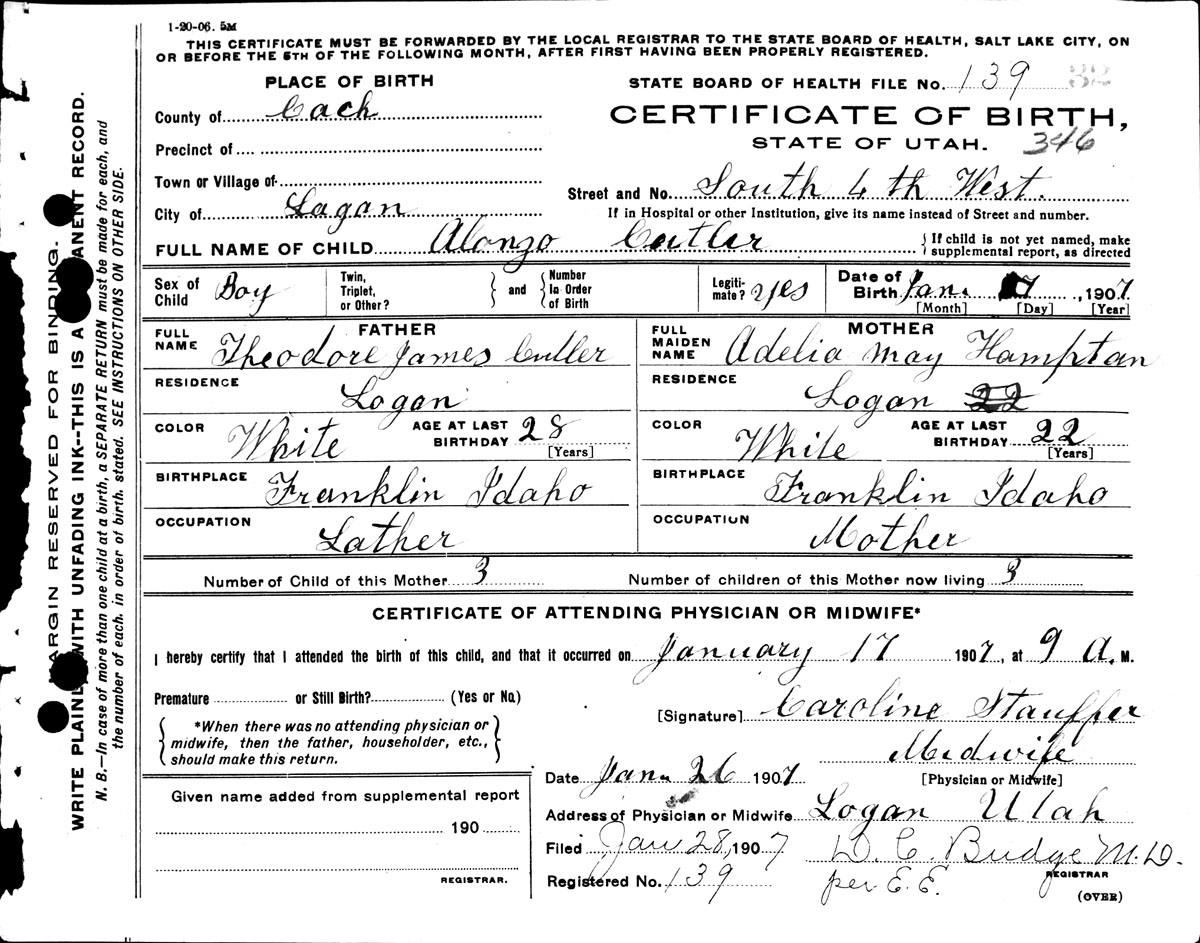 1-20-06. 5M
THIS CERTIFICATE MUST BE FORWARDED BY THE LOCAL REGISTRAR TO THE STATE BOARD OF HEALTH, SALT LAKE CITY, ON
OR BEFORE THE 5TH OF THE FOLLOWING MONTH, AFTER FIRST HAVING BEEN PROPERLY REGISTERED.
PLACE OF BIRTH
STATE BOARD OF HEALTH FILE No. 139 32
County of Cach
CERTIFICATE OF BIRTH,
STATE OF UTAH. 346
Precinct of
Town or Village of
Street and No. South 4th West.
City of Logan
If in Hospital or other Institution, give its name instead of Street and number.
FULL NAME OF CHILD Alonzo Cutler
{ If child is not yet named, make
supplemental report, as directed
Sex of Child Boy
Twin, Triplet, or Other? } and { Number In Order of Birth
Legiti-mate? Yes
Date of Birth Jan. 17, 1907
[Month] [Day] [Year]
FATHER
FULL NAME Theodore James Cutler
RESIDENCE Logan
COLOR White AGE AT LAST BIRTHDAY 28 [Years]
BIRTHPLACE Franklin Idaho
OCCUPATION Lather
MOTHER
FULL MAIDEN NAME Adelia May Hamptan
RESIDENCE Logan 22
COLOR White AGE AT LAST BIRTHDAY 22 [Years]
BIRTHPLACE Franklin Idaho
OCCUPATION Mother
Number of Child of this Mother 3 Number of children of this Mother now living 3
CERTIFICATE OF ATTENDING PHYSICIAN OR MIDWIFE*
I hereby certify that I attended the birth of this child, and that it occurred on January 17 1907, at 9 A. M.
Premature or Still Birth? (Yes or No.)
[Signature] Caroline Stauffer
Midwife
[Physician or Midwife]
{ *When there was no attending physician or
midwife, then the father, householder, etc.,
should make this return. }
Date Jan. 26 1907
Given name added from supplemental report
190
REGISTRAR.
Address of Physician or Midwife Logan Utah
Filed Jan 28, 1907 D. C. Budge M.D.
REGISTRAR
Registered No. 139 per E. E.
(OVER)
MARGIN RESERVED FOR BINDING.
WRITE PLAINLY WITH UNFADING INK--THIS IS A PERMANENT RECORD.
N. B.—In case of more than one child at a birth, a SEPARATE RETURN must be made for each, and
the number of each, in order of birth, stated. SEE INSTRUCTIONS ON OTHER SIDE.